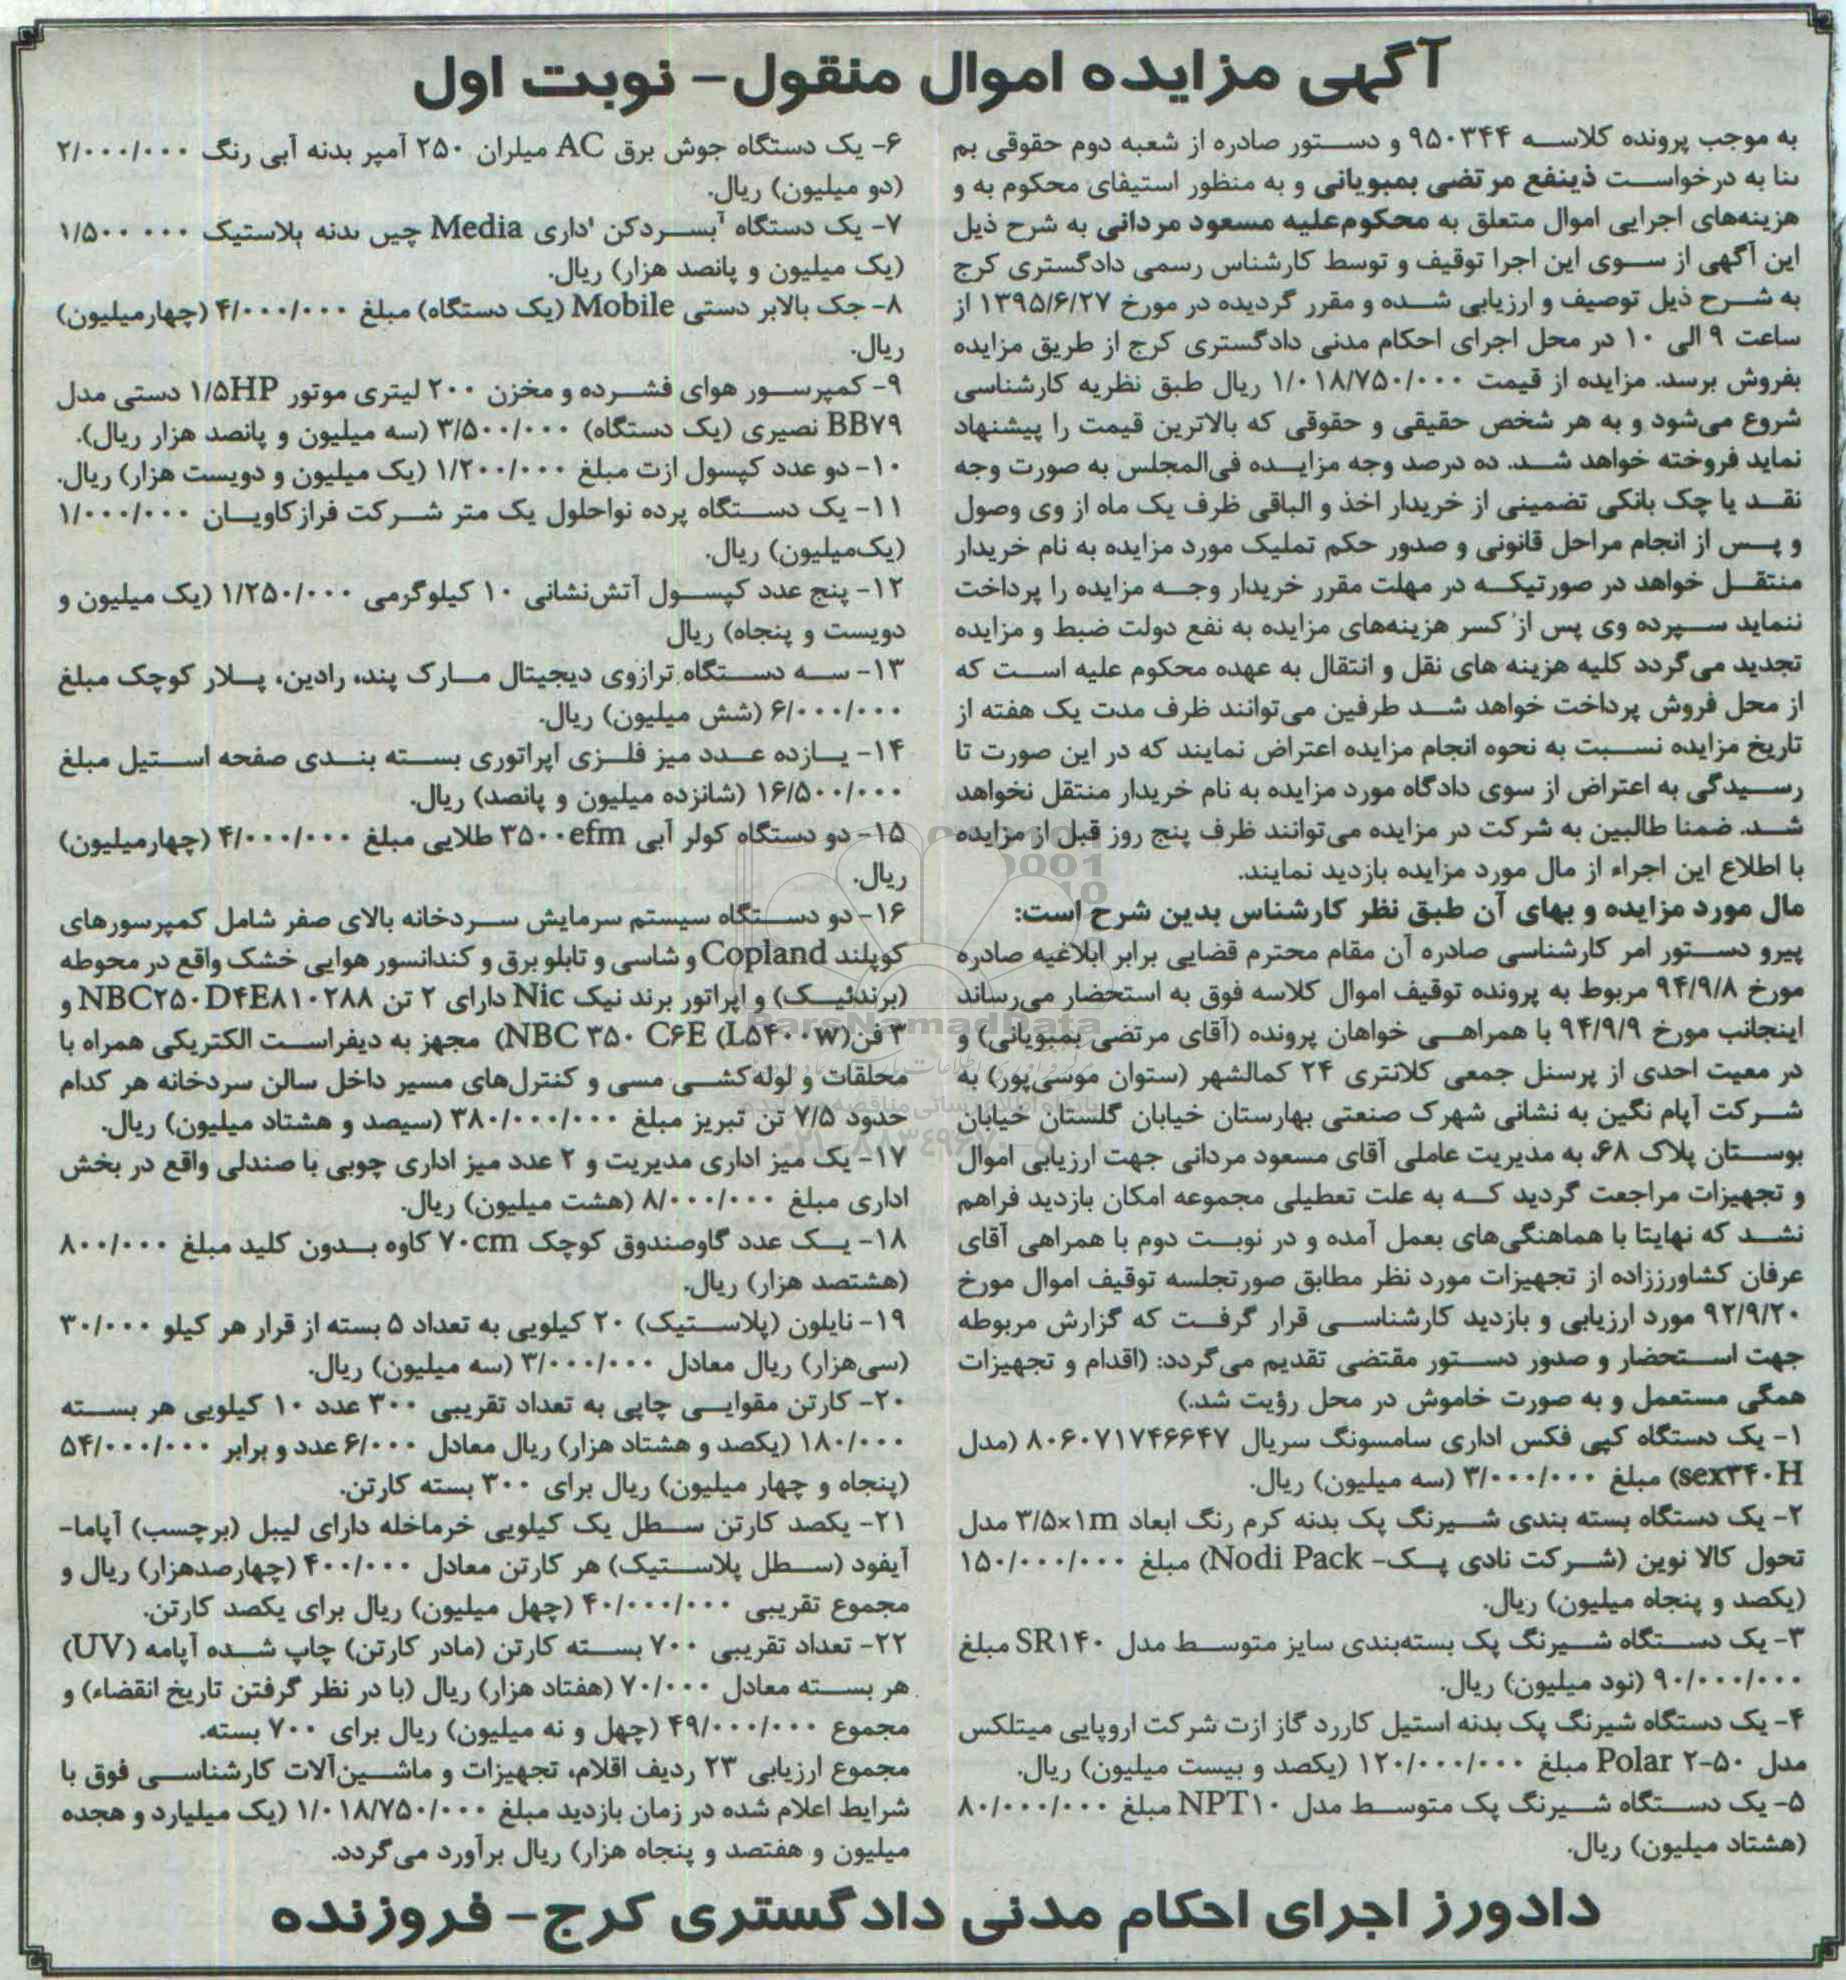 آگهی مزایده اموال منقول- نوبت اول
به موجب پرونده کلاسه ۹۵۰۳۴۴ و دستور صادره از شعبه دوم حقوقی بم
بنا به درخواست ذینفع مرتضی بمبویانی و به منظور استیفای محکوم به و
هزینه‌های اجرایی اموال متعلق به محکوم‌علیه مسعود مردانی به شرح ذیل
این آگهی از سوی این اجرا توقیف و توسط کارشناس رسمی دادگستری کرج
به شرح ذیل توصیف و ارزیابی شده و مقرر گردیده در مورخ ۱۳۹۵/۶/۲۷ از
ساعت ۹ الی ۱۰ در محل اجرای احکام مدنی دادگستری کرج از طریق مزایده
بفروش برسد. مزایده از قیمت ۱/۰۱۸/۷۵۰/۰۰۰ ریال طبق نظریه کارشناسی
شروع می‌شود و به هر شخص حقیقی و حقوقی که بالاترین قیمت را پیشنهاد
نماید فروخته خواهد شد. ده درصد وجه مزایده فی‌المجلس به صورت وجه
نقد یا چک بانکی تضمینی از خریدار اخذ و الباقی ظرف یک ماه از وی وصول
و پس از انجام مراحل قانونی و صدور حکم تملیک مورد مزایده به نام خریدار
منتقل خواهد در صورتیکه در مهلت مقرر خریدار وجه مزایده را پرداخت
ننماید سپرده وی پس از کسر هزینه‌های مزایده به نفع دولت ضبط و مزایده
تجدید می‌گردد کلیه هزینه های نقل و انتقال به عهده محکوم علیه است که
از محل فروش پرداخت خواهد شد طرفین می‌توانند ظرف مدت یک هفته از
تاریخ مزایده نسبت به نحوه انجام مزایده اعتراض نمایند که در این صورت تا
رسیدگی به اعتراض از سوی دادگاه مورد مزایده به نام خریدار منتقل نخواهد
شد. ضمنا طالبین به شرکت در مزایده می‌توانند ظرف پنج روز قبل از مزایده
با اطلاع این اجراء از مال مورد مزایده بازدید نمایند.
مال مورد مزایده و بهای آن طبق نظر کارشناس بدین شرح است:
پیرو دستور امر کارشناسی صادره آن مقام محترم قضایی برابر ابلاغیه صادره
مورخ ۹۴/۹/۸ مربوط به پرونده توقیف اموال کلاسه فوق به استحضار می‌رساند
اینجانب مورخ ۹۴/۹/۹ با همراهی خواهان پرونده (آقای مرتضی بمبویانی) و
در معیت احدی از پرسنل جمعی کلانتری ۲۴ کمالشهر (ستوان موسی‌پور) به
شرکت آپام نگین به نشانی شهرک صنعتی بهارستان خیابان گلستان خیابان
بوستان پلاک ۶۸، به مدیریت عاملی آقای مسعود مردانی جهت ارزیابی اموال
و تجهیزات مراجعت گردید که به علت تعطیلی مجموعه امکان بازدید فراهم
نشد که نهایتا با هماهنگی‌های بعمل آمده و در نوبت دوم با همراهی آقای
عرفان کشاورززاده از تجهیزات مورد نظر مطابق صورتجلسه توقیف اموال مورخ
۹۲/۹/۲۰ مورد ارزیابی و بازدید کارشناسی قرار گرفت که گزارش مربوطه
جهت استحضار و صدور دستور مقتضی تقدیم می‌گردد: (اقدام و تجهیزات
همگی مستعمل و به صورت خاموش در محل رؤیت شد.)
۱- یک دستگاه کپی فکس اداری سامسونگ سریال ۸۰۶۰۷۱۷۴۶۶۴۷ (مدل
sex۳۴۰H) مبلغ ۳/۰۰۰/۰۰۰ (سه میلیون) ریال.
۲- یک دستگاه بسته بندی شیرنگ پک بدنه کرم رنگ ابعاد ۳/۵×۱m مدل
تحول کالا نوین (شرکت نادی پک- Nodi Pack) مبلغ ۱۵۰/۰۰۰/۰۰۰
(یکصد و پنجاه میلیون) ریال.
۳- یک دستگاه شیرنگ پک بسته‌بندی سایز متوسط مدل SR۱۴۰ مبلغ
۹۰/۰۰۰/۰۰۰ (نود میلیون) ریال.
۴- یک دستگاه شیرنگ پک بدنه استیل کاررد گاز ازت شرکت اروپایی میتلکس
مدل Polar ۲-۵۰ مبلغ ۱۲۰/۰۰۰/۰۰۰ (یکصد و بیست میلیون) ریال.
۵- یک دستگاه شیرنگ پک متوسط مدل NPT۱۰ مبلغ ۸۰/۰۰۰/۰۰۰
(هشتاد میلیون) ریال.
۶- یک دستگاه جوش برق AC میلران ۲۵۰ آمپر بدنه آبی رنگ ۲/۰۰۰/۰۰۰
(دو میلیون) ریال.
۷- یک دستگاه آبسردکن اداری Media چین بدنه پلاستیک ۱/۵۰۰ ۰۰۰
(یک میلیون و پانصد هزار) ریال.
۸- جک بالابر دستی Mobile (یک دستگاه) مبلغ ۴/۰۰۰/۰۰۰ (چهارمیلیون)
ریال.
۹- کمپرسور هوای فشرده و مخزن ۲۰۰ لیتری موتور ۱/۵HP دستی مدل
BB۷۹ نصیری (یک دستگاه) ۳/۵۰۰/۰۰۰ (سه میلیون و پانصد هزار ریال).
۱۰- دو عدد کپسول ازت مبلغ ۱/۲۰۰/۰۰۰ (یک میلیون و دویست هزار) ریال.
۱۱- یک دستگاه پرده نواحلول یک متر شرکت فرازکاویان ۱/۰۰۰/۰۰۰
(یک‌میلیون) ریال.
۱۲- پنج عدد کپسول آتش‌نشانی ۱۰ کیلوگرمی ۱/۲۵۰/۰۰۰ (یک میلیون و
دویست و پنجاه) ریال
۱۳- سه دستگاه ترازوی دیجیتال مارک پند، رادین، پلار کوچک مبلغ
۶/۰۰۰/۰۰۰ (شش میلیون) ریال.
۱۴- یازده عدد میز فلزی اپراتوری بسته بندی صفحه استیل مبلغ
۱۶/۵۰۰/۰۰۰ (شانزده میلیون و پانصد) ریال.
۱۵- دو دستگاه کولر آبی ۳۵۰۰efm طلایی مبلغ ۴/۰۰۰/۰۰۰ (چهارمیلیون)
ریال.
۱۶- دو دستگاه سیستم سرمایش سردخانه بالای صفر شامل کمپرسورهای
کوپلند Copland و شاسی و تابلو برق و کندانسور هوایی خشک واقع در محوطه
(برندنیک) و اپراتور برند نیک Nic دارای ۲ تن NBC۲۵۰D۴E۸۱۰۲۸۸ و
۳ فن(NBC ۳۵۰ C۶E (L۵۴۰۰w) مجهز به دیفراست الکتریکی همراه با
محلقات و لوله‌کشی مسی و کنترل‌های مسیر داخل سالن سردخانه هر کدام
حدود ۷/۵ تن تبریز مبلغ ۳۸۰/۰۰۰/۰۰۰ (سیصد و هشتاد میلیون) ریال.
۱۷- یک میز اداری مدیریت و ۲ عدد میز اداری چوبی با صندلی واقع در بخش
اداری مبلغ ۸/۰۰۰/۰۰۰ (هشت میلیون) ریال.
۱۸- یک عدد گاوصندوق کوچک ۷۰cm کاوه بدون کلید مبلغ ۸۰۰/۰۰۰
(هشتصد هزار) ریال.
۱۹- نایلون (پلاستیک) ۲۰ کیلویی به تعداد ۵ بسته از قرار هر کیلو ۳۰/۰۰۰
(سی‌هزار) ریال معادل ۳/۰۰۰/۰۰۰ (سه میلیون) ریال.
۲۰- کارتن مقوایی چاپی به تعداد تقریبی ۳۰۰ عدد ۱۰ کیلویی هر بسته
۱۸۰/۰۰۰ (یکصد و هشتاد هزار) ریال معادل ۶/۰۰۰ عدد و برابر ۵۴/۰۰۰/۰۰۰
(پنجاه و چهار میلیون) ریال برای ۳۰۰ بسته کارتن.
۲۱- یکصد کارتن سطل یک کیلویی خرماخله دارای لیبل (برچسب) آپاما-
آیفود (سطل پلاستیک) هر کارتن معادل ۴۰۰/۰۰۰ (چهارصدهزار) ریال و
مجموع تقریبی ۴۰/۰۰۰/۰۰۰ (چهل میلیون) ریال برای یکصد کارتن.
۲۲- تعداد تقریبی ۷۰۰ بسته کارتن (مادر کارتن) چاپ شده آپامه (UV)
هر بسته معادل ۷۰/۰۰۰ (هفتاد هزار) ریال (با در نظر گرفتن تاریخ انقضاء) و
مجموع ۴۹/۰۰۰/۰۰۰ (چهل و نه میلیون) ریال برای ۷۰۰ بسته.
مجموع ارزیابی ۲۳ ردیف اقلام، تجهیزات و ماشین‌آلات کارشناسی فوق با
شرایط اعلام شده در زمان بازدید مبلغ ۱/۰۱۸/۷۵۰/۰۰۰ (یک میلیارد و هجده
میلیون و هفتصد و پنجاه هزار) ریال برآورد می‌گردد.
دادورز اجرای احکام مدنی دادگستری کرج- فروزنده
ParsNamadData
۰۲۱-۸۸۳۴۹۶۷۰-۵